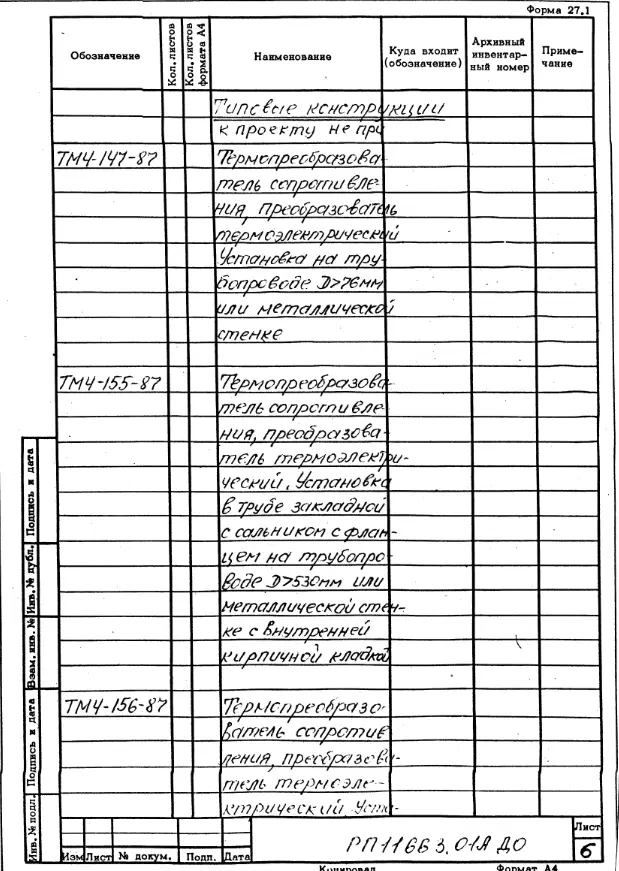 Форма 27.1
Обозначение
Кол. листов
Кол. листов формата А4
Наименование
Куда входит (обозначение)
Архивный инвентарный номер
Примечание
Типовые конструкции
к проекту не при
ТМ4-147-87 Термопреобразова-
тель сопротивле-
ния, преобразователь
термоэлектрический
Установка на тру-
бопроводе D>76мм
или металлической
стенке
ТМ4-155-87 Термопреобразова-
тель сопротивле-
ния, преобразова-
тель термоэлектри-
ческий. Установка
в трубе закладной
с сальником с флан-
цем на трубопро-
воде D>530мм или
металлической стен-
ке с внутренней
кирпичной кладкой
ТМ4-156-87 Термопреобразо-
ватель сопротив
ления, преобразова-
тель термоэле-
ктрический. Уста-
Подпись и дата
Инв. № дубл.
Взам. инв. №
Подпись и дата
Инв. № подл.
Изм Лист № докум. Подп. Дата
РП11663.01А ДО
Лист
6
Копировал Формат А4